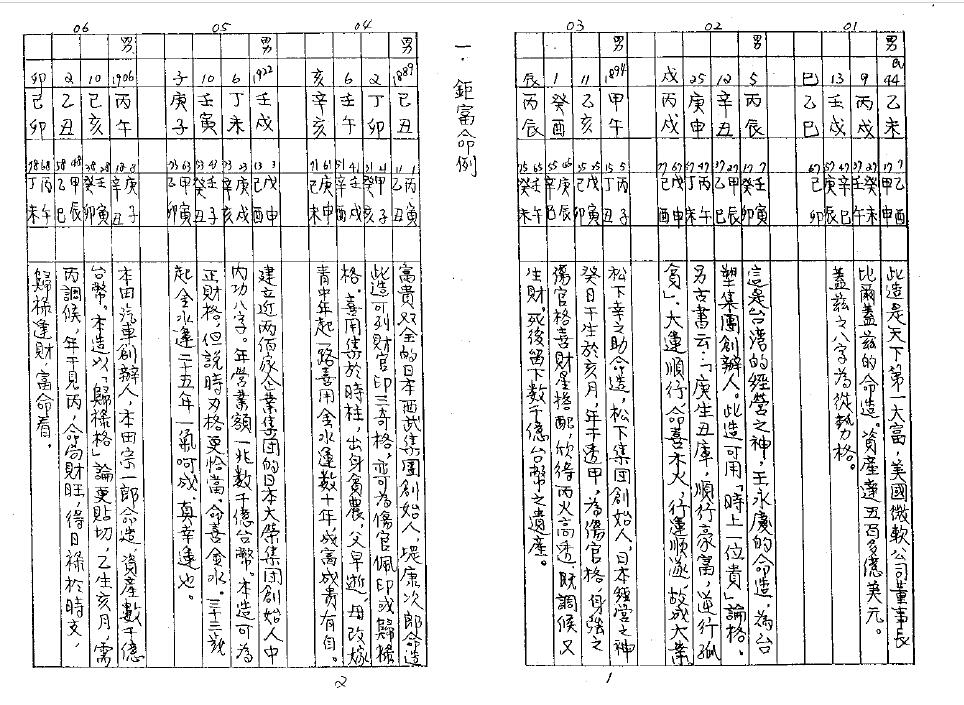 01
男 民44 乙未 7 17 乙酉 甲申 此造是天下第一大富,美國微軟公司董事長
9 丙戌 27 37 癸未 壬午 比爾蓋茲的命造。資產達五百多億美元。
13 壬戌 47 57 辛巳 庚辰 蓋茲之八字為從勢力格。
巳 乙巳 67 己卯
02
男 5 丙辰 7 17 壬寅 癸卯 這是台湾的經營之神,王永慶的命造,為台
12 辛丑 27 37 甲辰 乙巳 塑集團創辦人。此造可用「時上一位貴」論格。
25 庚申 47 57 丙午 丁未 另古書云:「庚生丑庫,順行豪富,逆行孤
戌 丙戌 67 77 戊申 己酉 貧」。大運順行,命喜木火,行運順遂,故成大業
03
男 1894 甲午 5 15 丙子 丁丑 松下幸之助命造,松下集团創始人,日本經營之神
11 乙亥 25 35 戊寅 己卯 癸日干生於亥月,年干透甲,為傷官格,身強之
1 癸酉 45 55 庚辰 辛巳 傷官格喜財星搭配,欣得丙火高透,財調候又
辰 丙辰 65 75 壬午 癸未 生財,死後留下數千億台幣之遺產。
1
一. 鉅富命例
04
男 1889 己丑 1 11 丙寅 乙丑 富貴双全的日本西武集團創始人,堤康次郎命造
2 丁卯 21 31 甲子 癸亥 此造可列財官印三奇格,亦可為傷官佩印或歸祿
6 壬午 41 51 壬戌 辛酉 格。喜用集於時柱,出身貧農,父早逝,母改嫁
亥 辛亥 61 71 庚申 己未 青中年起一路喜用金水運數十年,成富成貴有自。
05
男 1922 壬戌 3 13 戊申 己酉 建立近两佰家企業集團的日本大榮集団創始人中
6 丁未 23 33 庚戌 辛亥 内功八字。年營業額一兆數千億台幣。本造可為
10 壬寅 43 53 壬子 癸丑 正財格,但説時刃格更恰當,命喜金水。三十三歲
子 庚子 63 73 甲寅 乙卯 起金水運二十五年一氣呵成,真幸運也。
06
男 1906 丙午 8 18 庚子 辛丑 本田汽車創辦人,本田宗一郎命造,資產數千億
10 己亥 28 38 壬寅 癸卯 台幣。本造以「歸祿格」論更貼切,乙生亥月,需
2 乙丑 48 58 甲辰 乙巳 丙調候,年干見丙,命局財旺,得日祿於時支,
卯 己卯 68 78 丙午 丁未 歸祿逢財,富命看。
2